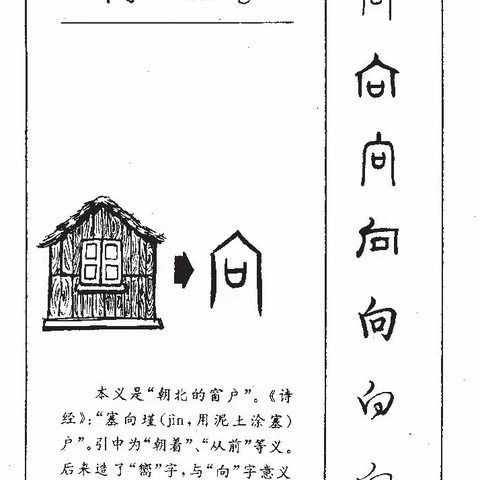 本义是“朝北的窗户”。《诗
经》:“塞向墐(jìn,用泥土涂塞)
户”。引申为“朝着”、“从前”等义。
后来造了“嚮”字,与“向”字意义
向
向
向
向
向